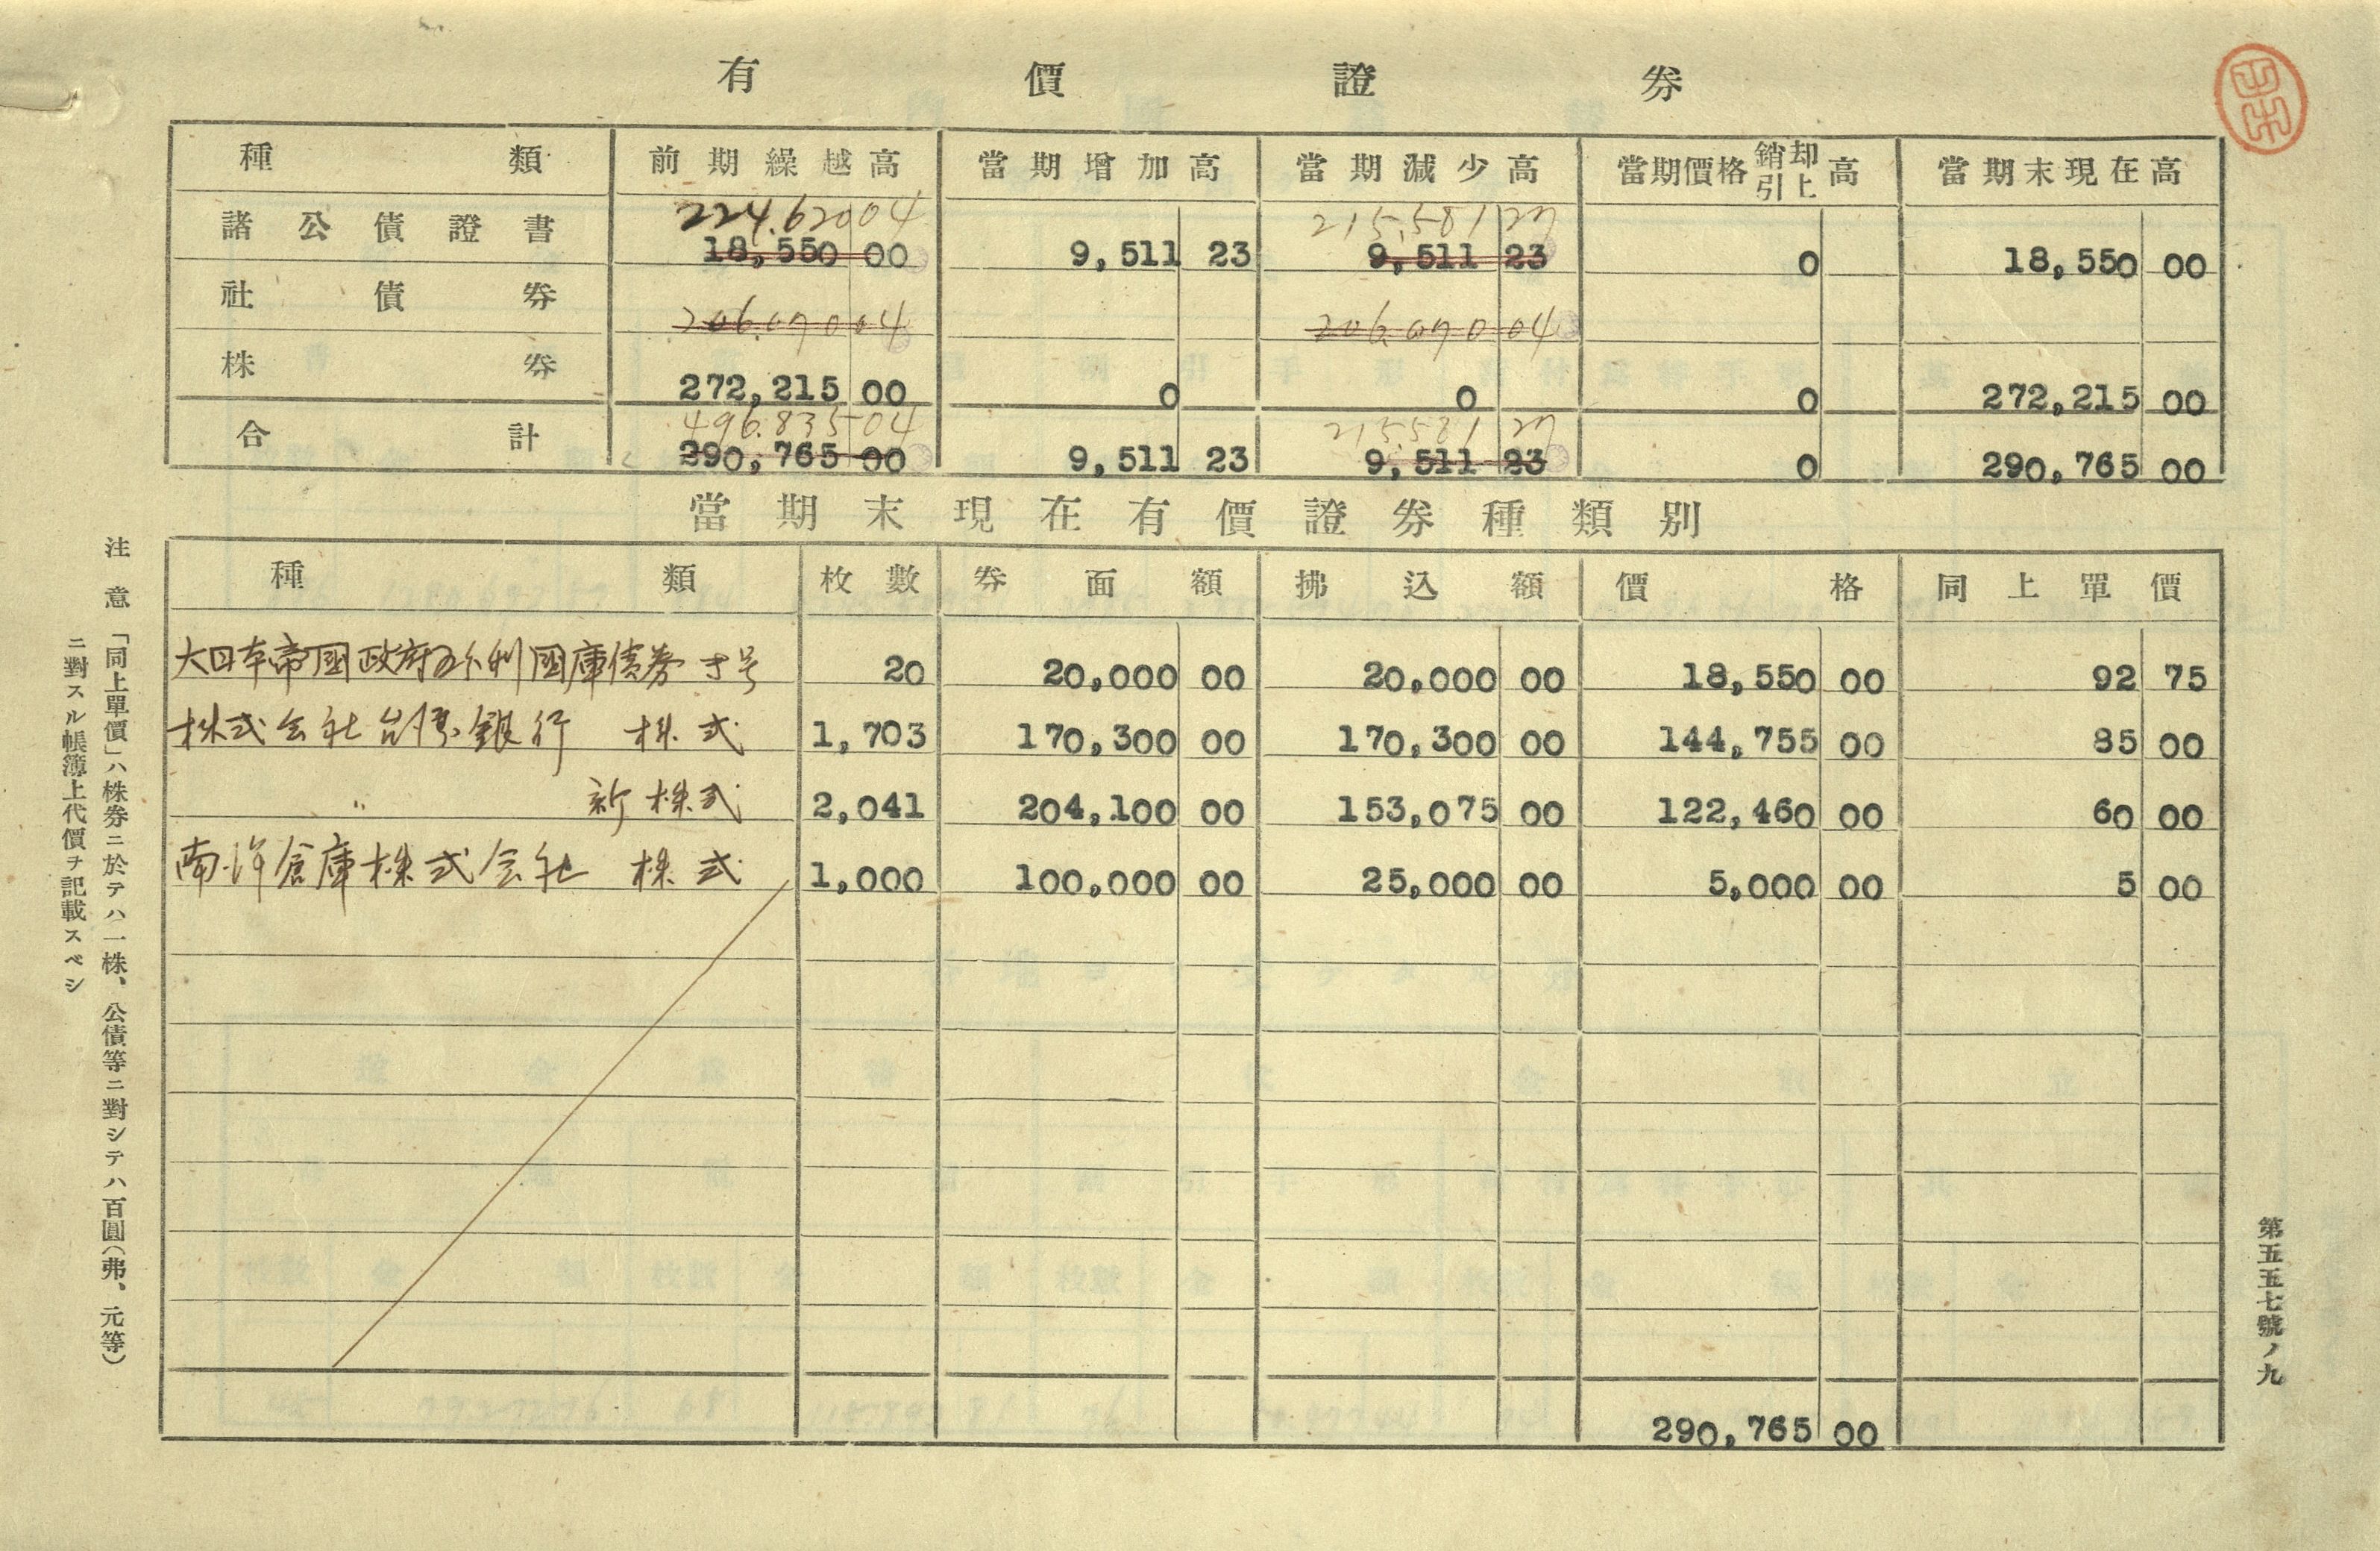 有價證券
種類 前期繰越高 當期增加高 當期減少高 當期價格銷却引上高 當期末現在高
224,620 04 215,581 27
諸公債證書 18,550 00 9,511 23 9,511 23 0 18,550 00
社債券 206,070 04 206,070 04
株券 272,215 00 0 0 0 272,215 00
496,835 04 215,581 27
合計 290,765 00 9,511 23 9,511 23 0 290,765 00
當期末現在有價證券種類別
種類 枚數 券面額 拂込額 價格 同上單價
大日本帝國政府五分利國庫債券 号 20 20,000 00 20,000 00 18,550 00 92 75
株式会社台湾銀行 株式 1,703 170,300 00 170,300 00 144,755 00 85 00
〃 新株式 2,041 204,100 00 153,075 00 122,460 00 60 00
南洋倉庫株式会社 株式 1,000 100,000 00 25,000 00 5,000 00 5 00
290,765 00
注意 「同上單價」ハ株券ニ於テハ一株、公債等ニ對シテハ百圓(弗、元等)
ニ對スル帳簿上代價ヲ記載スベシ
第五五七號ノ九